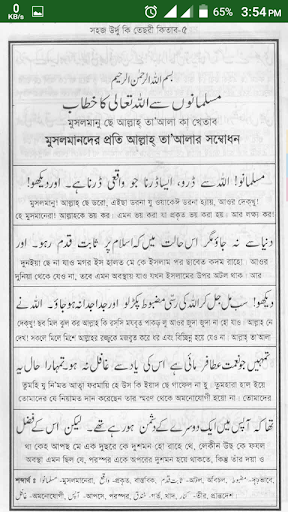 0 KB/s 65% 3:54 PM
সহজ উর্দু কি তেছরী কিতাব-৫
بسم اللہ الرحمٰن الرحیم
مسلمانوں سے اللہ تعالیٰ کا خطاب
মুসলমানু ছে আল্লাহ্ তা'আলা কা খেতাব
মুসলমানদের প্রতি আল্লাহ্ তা'আলার সম্বোধন
مسلمانو! اللہ سے ڈرو، ایسا ڈرنا جو واقعی ڈرنا ہے۔ اور دیکھو!
মুসলমানু! আল্লাহ ছে ডরো, এইছা ডরনা যু ওয়াকেঈ ডরনা হ্যায়, আওর দেকখু!
হে মুসলমানেরা! আল্লাহকে ভয় কর। এমন ভয় করা যা প্রকৃত ভয় করা হয়। আর লক্ষ্য কর!
دنیا سے نہ جاؤ مگر اس حالت میں کہ اسلام پر ثابت قدم رہو۔ اور
দুনইয়া ছে না যাও মগর ইস হালত মেঁ কে ইসলাম পর ছাবেত কদম রাহো। আওর
দুনিয়া থেকে যেও না, তবে এমন অবস্থায় যাও যখন ইসলামের উপর অটল থাক। আর
دیکھو! سب مل جل کر اللہ کی رسّی مضبوط پکڑلو اور جدا جدا نہ ہو جاؤ۔ اللہ نے
দেকখু! ছব মিল জুল কর আল্লাহ কি রসসি মযবূত পাকড় লু আওর জুদা জুদা না হো যাও। আল্লাহ নে
দেখ! সকলে মিলে মিশে আল্লাহর রজ্জুকে মজবুত করে ধর এবং বিছিন্ন হয়ে যেও না। আল্লাহ
تمہیں جو نعمت عطا فرمائی ہے اس کی یاد سے غافل نہ ہو۔ تمہارا حال یہ
তুমহি যু নি'মত আত্বা ফরমায়ি হে উস কি ইয়াদ ছে গাফেল না হু। তুমহারা হাল ইয়ে
তোমাদেরকে যে নিয়ামত দান করেছেন তার স্মরণ থেকে অমনোযোগী হয়ো না। তোমাদের
تھا کہ آپس میں ایک دوسرے کے دشمن ہو رہے تھے۔ لیکن اس کے فضل
থা কেহ আপছ মেঁ এক দুছরে কে দুশমন হো রাহে থে, লেকীন উছ কে ফযল
অবস্থা এমন ছিল যে, পরস্পর একে অপরের দুশমন হয়ে থাকতে, কিন্তু তাঁর দয়া ও
শব্দার্থ ঃ مسلمانو -মুসলমানেরা, واقعی -প্রকৃত, বাস্তব, ثابت قدم -অটল, অবিচল, مضبوط -সুদৃঢ়,
غافل -অমনোযোগী, آپس -আপসে, পরস্পর, خندق -খন্দক, গর্ত, کنارہ -তীর, প্রান্তদেশ।